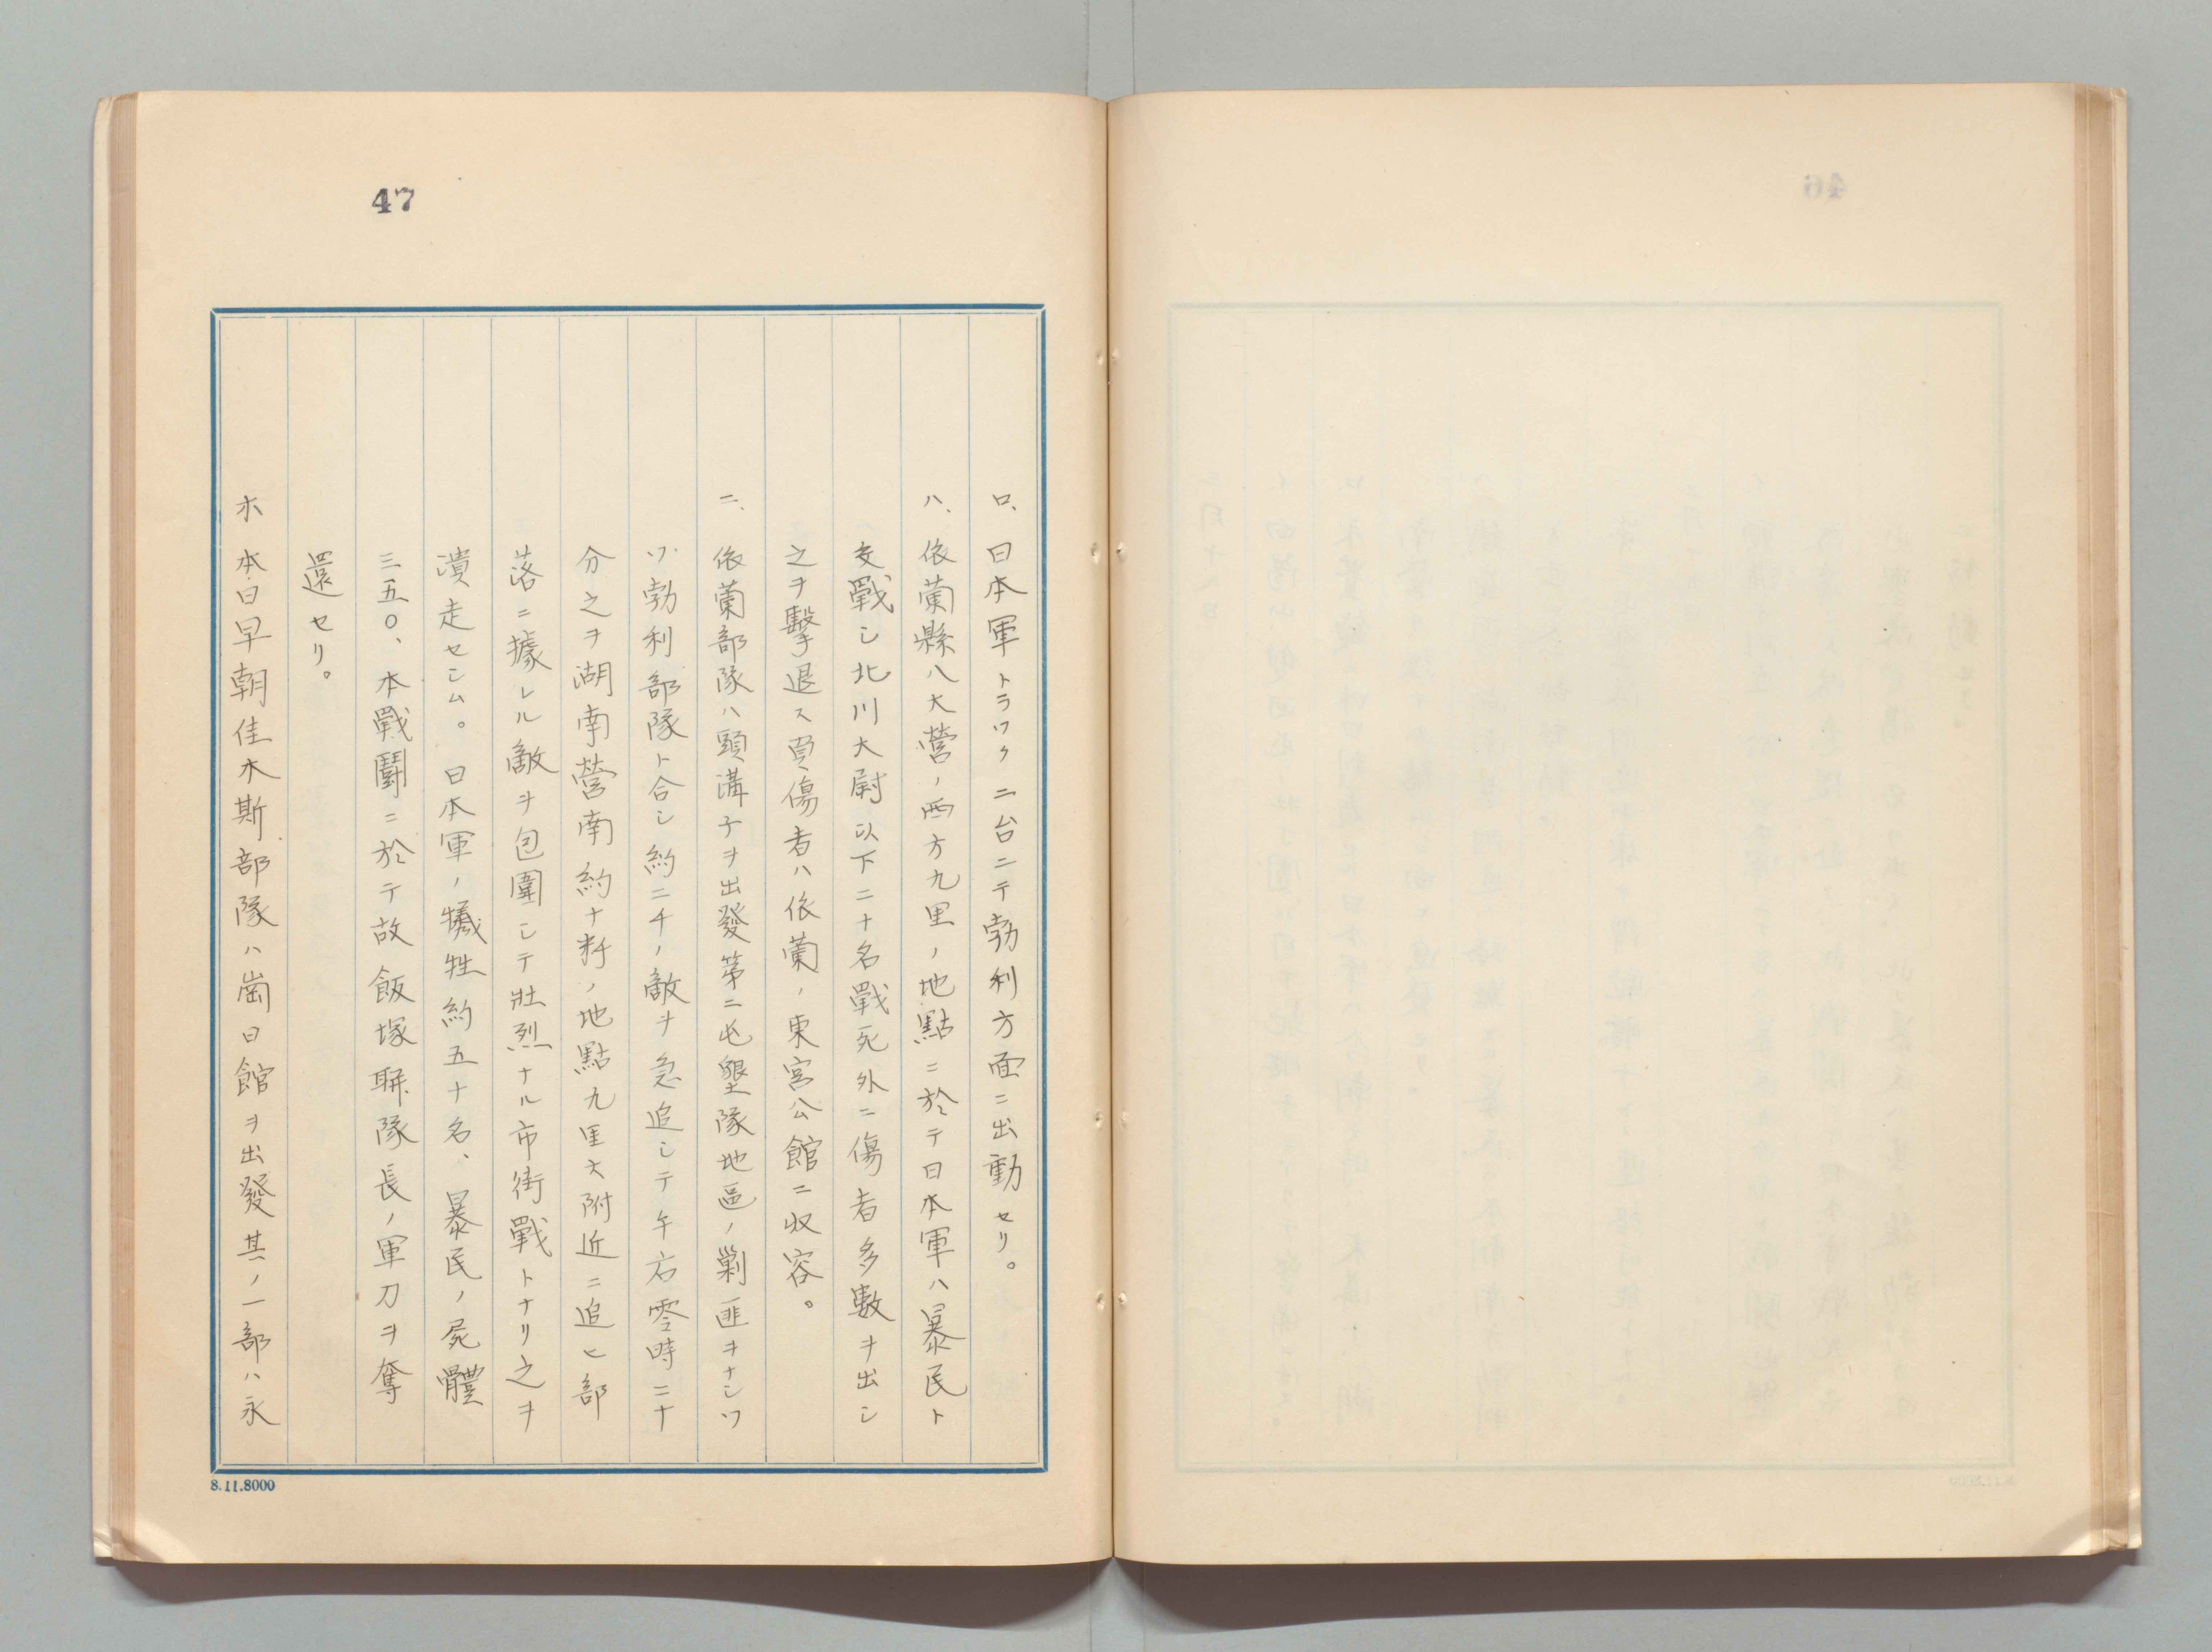 47
ロ、日本軍トラック二台ニテ勃利方面ニ出動セリ。
ハ、依蘭縣八大營ノ西方九里ノ地點ニ於テ日本軍ハ暴民ト
交戰シ北川大尉以下二十名戰死外ニ傷者多數ヲ出シ
之ヲ擊退ス負傷者ハ依蘭ノ東宮公館ニ収容。
ニ、依蘭部隊ハ頭溝子ヲ出發第二屯墾隊地區ノ剿匪ヲナシツ
ツ勃利部隊ト合シ約二千ノ敵ヲ急追シテ午后零時二十
分之ヲ湖南營南約十粁ノ地點九里六附近ニ追ヒ部
落ニ據レル敵ヲ包圍シテ壯烈ナル市街戰トナリ之ヲ
潰走セシム。日本軍ノ犧牲約五十名、暴民ノ屍體
三五〇、本戰鬪ニ於テ故飯塚聯隊長ノ軍刀ヲ奪
還セリ。
ホ 本日早朝佳木斯部隊ハ崗日館ヲ出發其ノ一部ハ永
8.11.8000